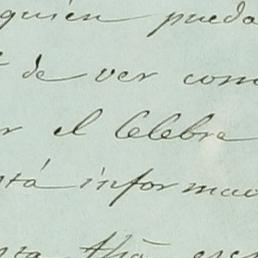 quien pueda
de ver com
r el Celebre
stá informac